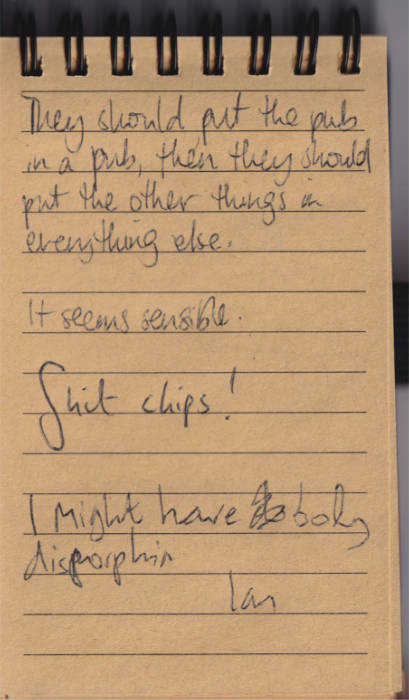 They should put the pub
in a pub, then they should
put the other things in
everything else.
It seems sensible.
Shit chips!
I might have body
dismorphia
Ian